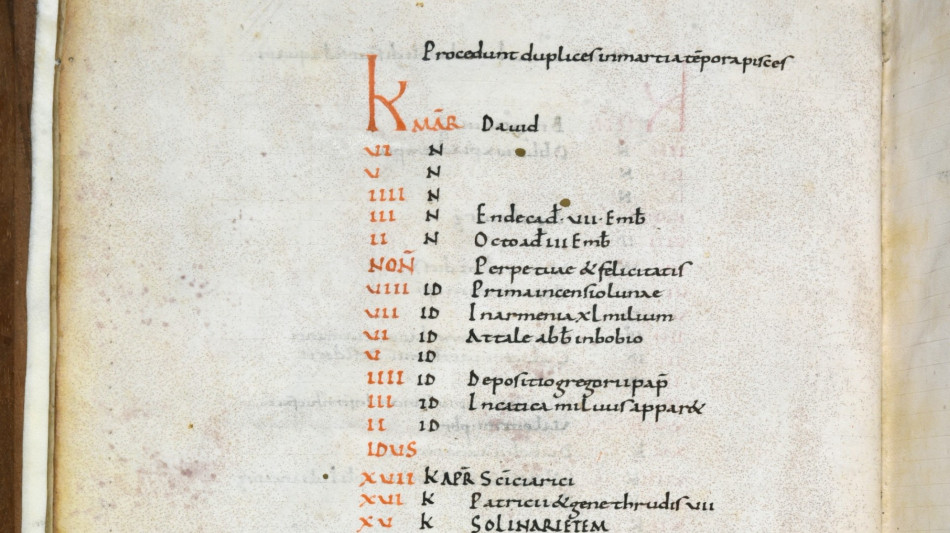 Procedunt duplices in martia tēpora pisces
K MAR̄ David
VII N
V N
IIII N
III N Endecad̄ · VII · Emb̄
II N Octoad̄ III Emb̄
NON̄ Perpetuae & felicitatis
VIIII ID Prima incensio lunae
VII ID In armenia xl milium
VI ID Attale abb̄ in bobio
V ID
IIII ID Depositio gregorii pap̄
III ID In catica miluus appar&
II ID
IDUS
XVII K APR̄ Sc̄i ciarici
XVI K Patricii & genethrudis VII
XV K SOL IN ARIETEM